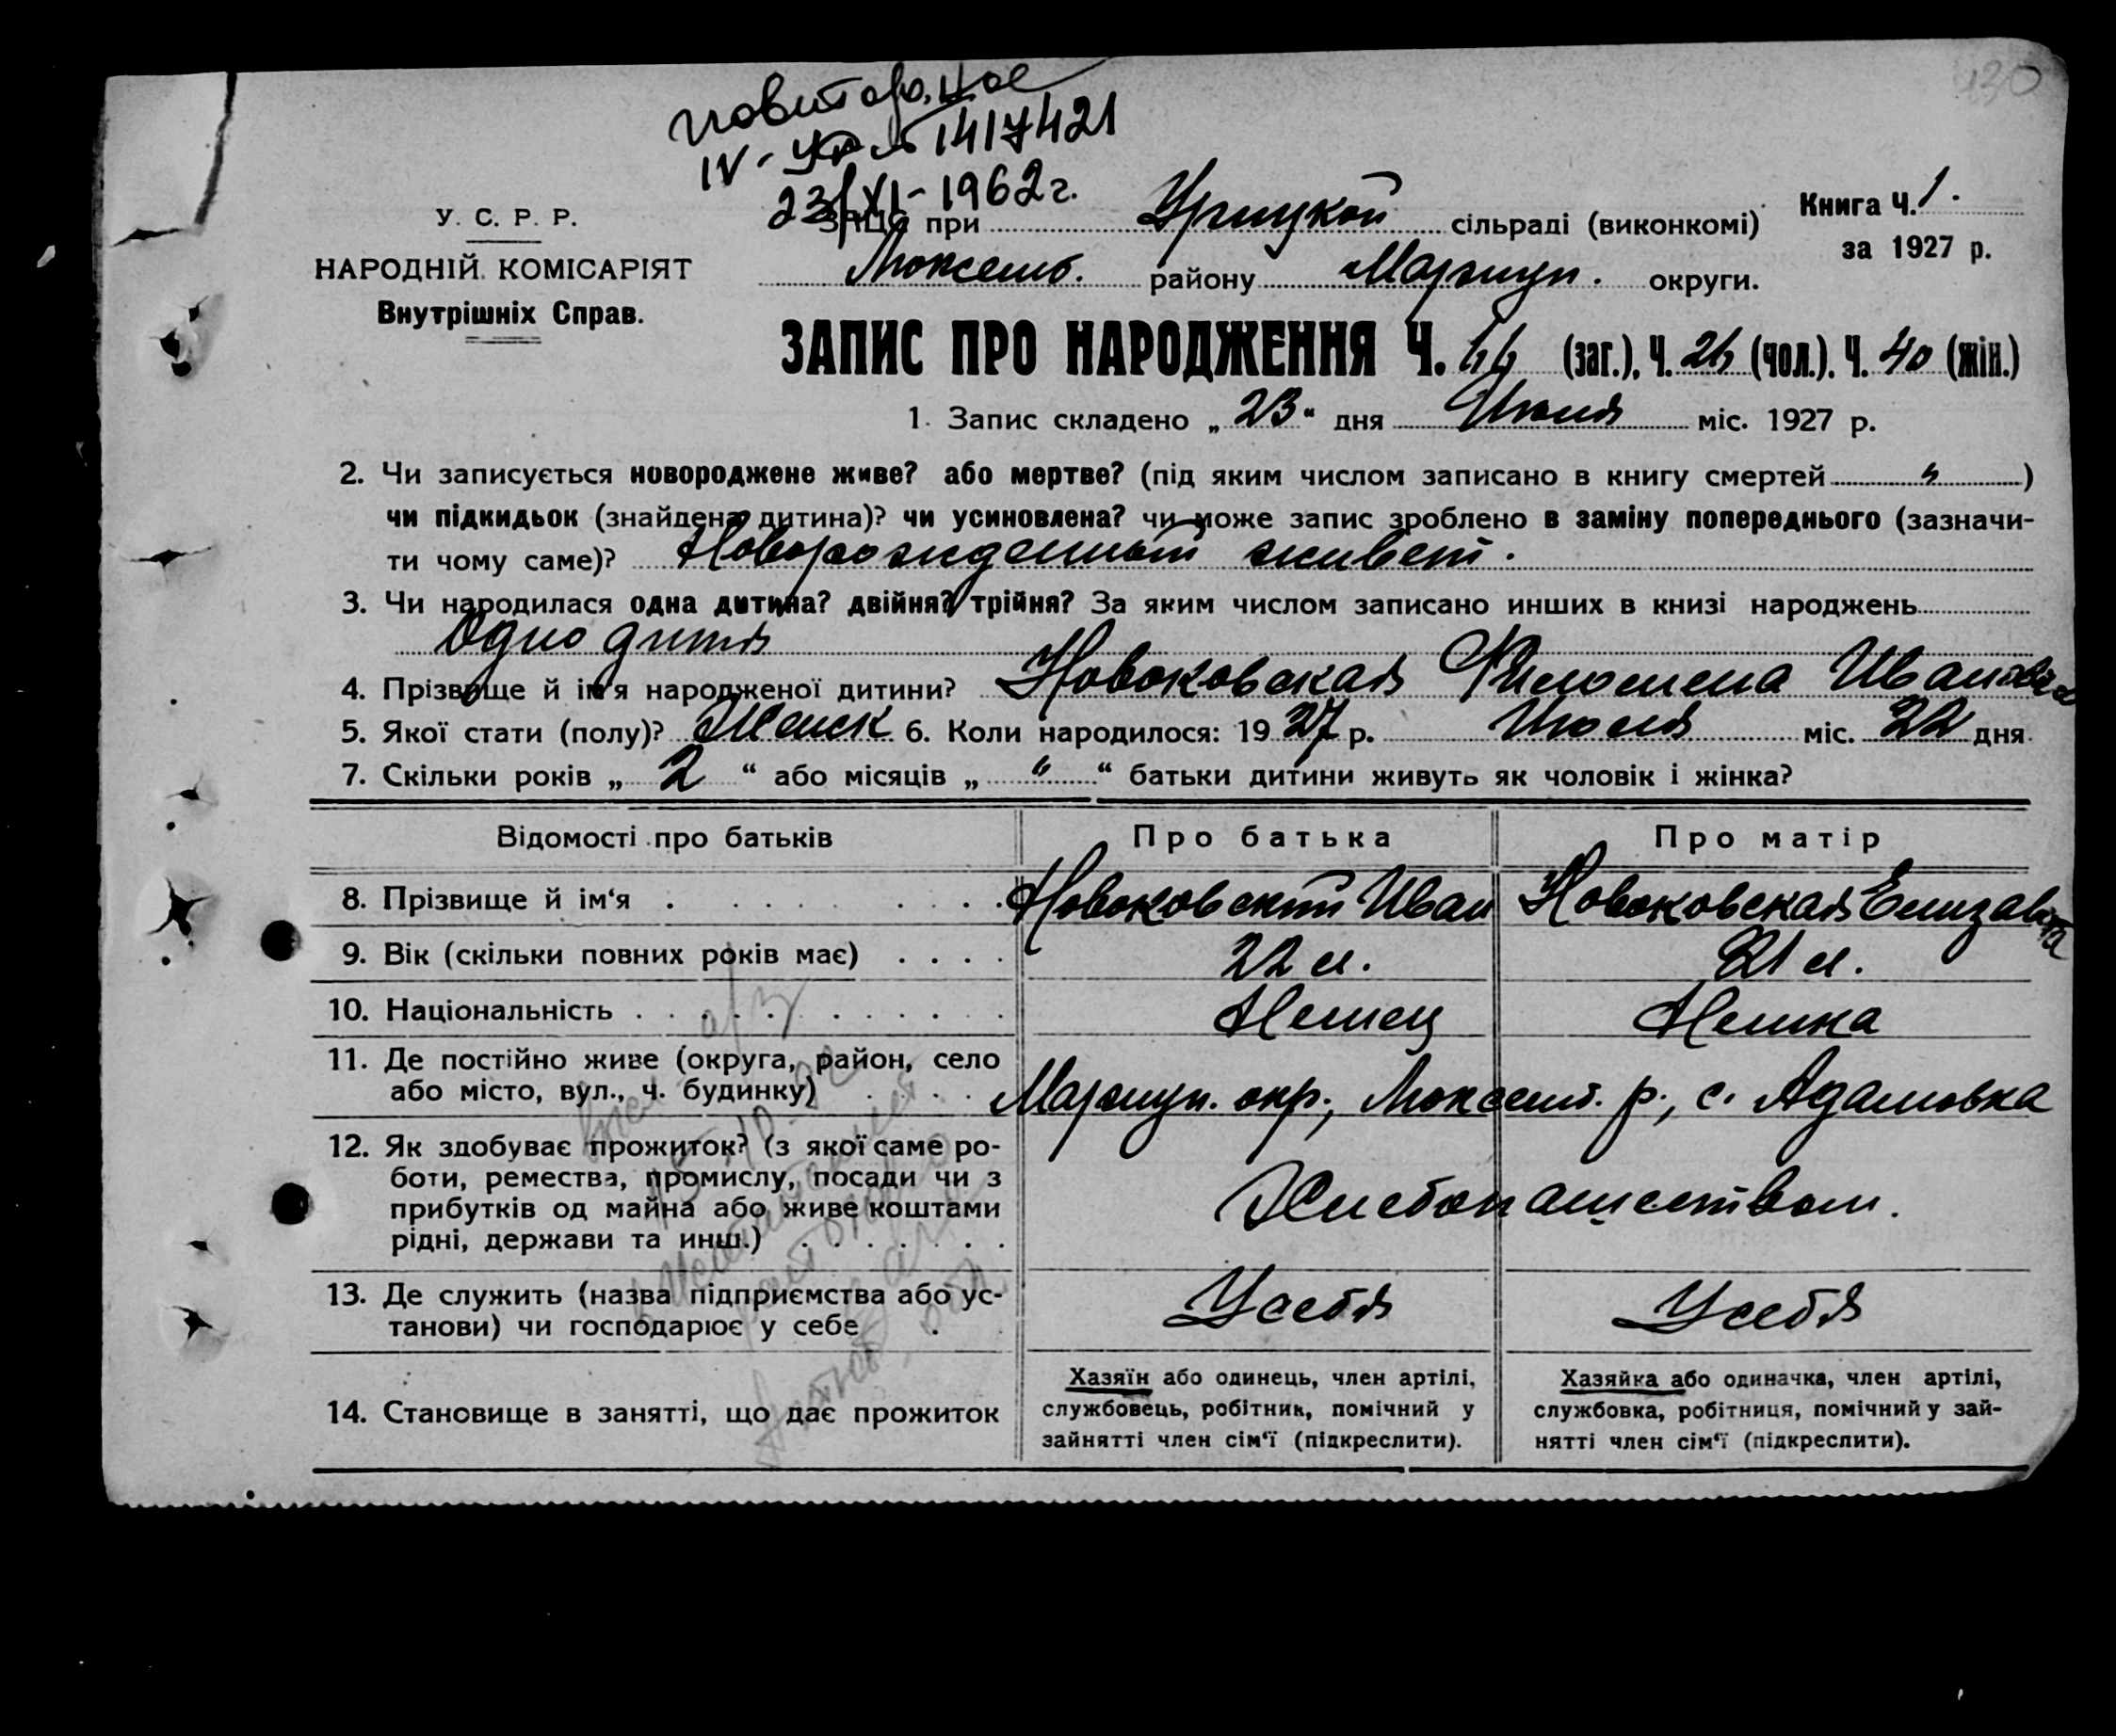 130
повторное
IV-УР № 1417421
23/XI-1962 г.
У. С. Р. Р.
НАРОДНІЙ КОМІСАРІЯТ
Внутрішніх Справ.
ЗАЦС при Урицкой сільраді (виконкомі)
Люксемб. району Мариуп. округи.
Книга Ч. 1.
за 1927 р.
ЗАПИС ПРО НАРОДЖЕННЯ Ч. 66 (заг.), Ч. 26 (чол.). Ч. 40 (жін.)
1. Запис складено „ 23 “ дня Июля міс. 1927 р.
2. Чи записується новороджене живе? або мертве? (під яким числом записано в книгу смертей " )
чи підкидьок (знайдена дитина)? чи усиновлена? чи може запис зроблено в заміну попереднього (зазначи-
ти чому саме)? Новорожденный живет.
3. Чи народилася одна дитина? двійня? трійня? За яким числом записано инших в книзі народжень
Одно дитя
4. Прізвище й ім'я народженої дитини? Новоковская Филомена Ивановна
5. Якої стати (полу)? Женск 6. Коли народилося: 19 27 р. Июля міс. 22 дня
7. Скільки років „ 2 “ або місяців „ " “ батьки дитини живуть як чоловік і жінка?
Відомості про батьків Про батька Про матір
8. Прізвище й ім‘я Новоковский Иван Новоковская Елизавета
9. Вік (скільки повних років має) 22 л. 21 л.
10. Національність Немец Немка
11. Де постійно живе (округа, район, село
або місто, вул., ч. будинку) Мариуп. окр., Люксемб. р., с. Адамовка
12. Як здобуває прожиток? (з якої саме ро-
боти, ремества, промислу, посади чи з
прибутків од майна або живе коштами
рідні, держави та инш.) Хлебопашеством.
13. Де служить (назва підприємства або ус-
танови) чи господарює у себе У себя У себя
14. Становище в занятті, що дає прожиток
Хазяїн або одинець, член артілі,
службовець, робітник, помічний у
зайнятті член сім‘ї (підкреслити).
Хазяйка або одиначка, член артілі,
службовка, робітниця, помічний у зай-
нятті член сім‘ї (підкреслити).